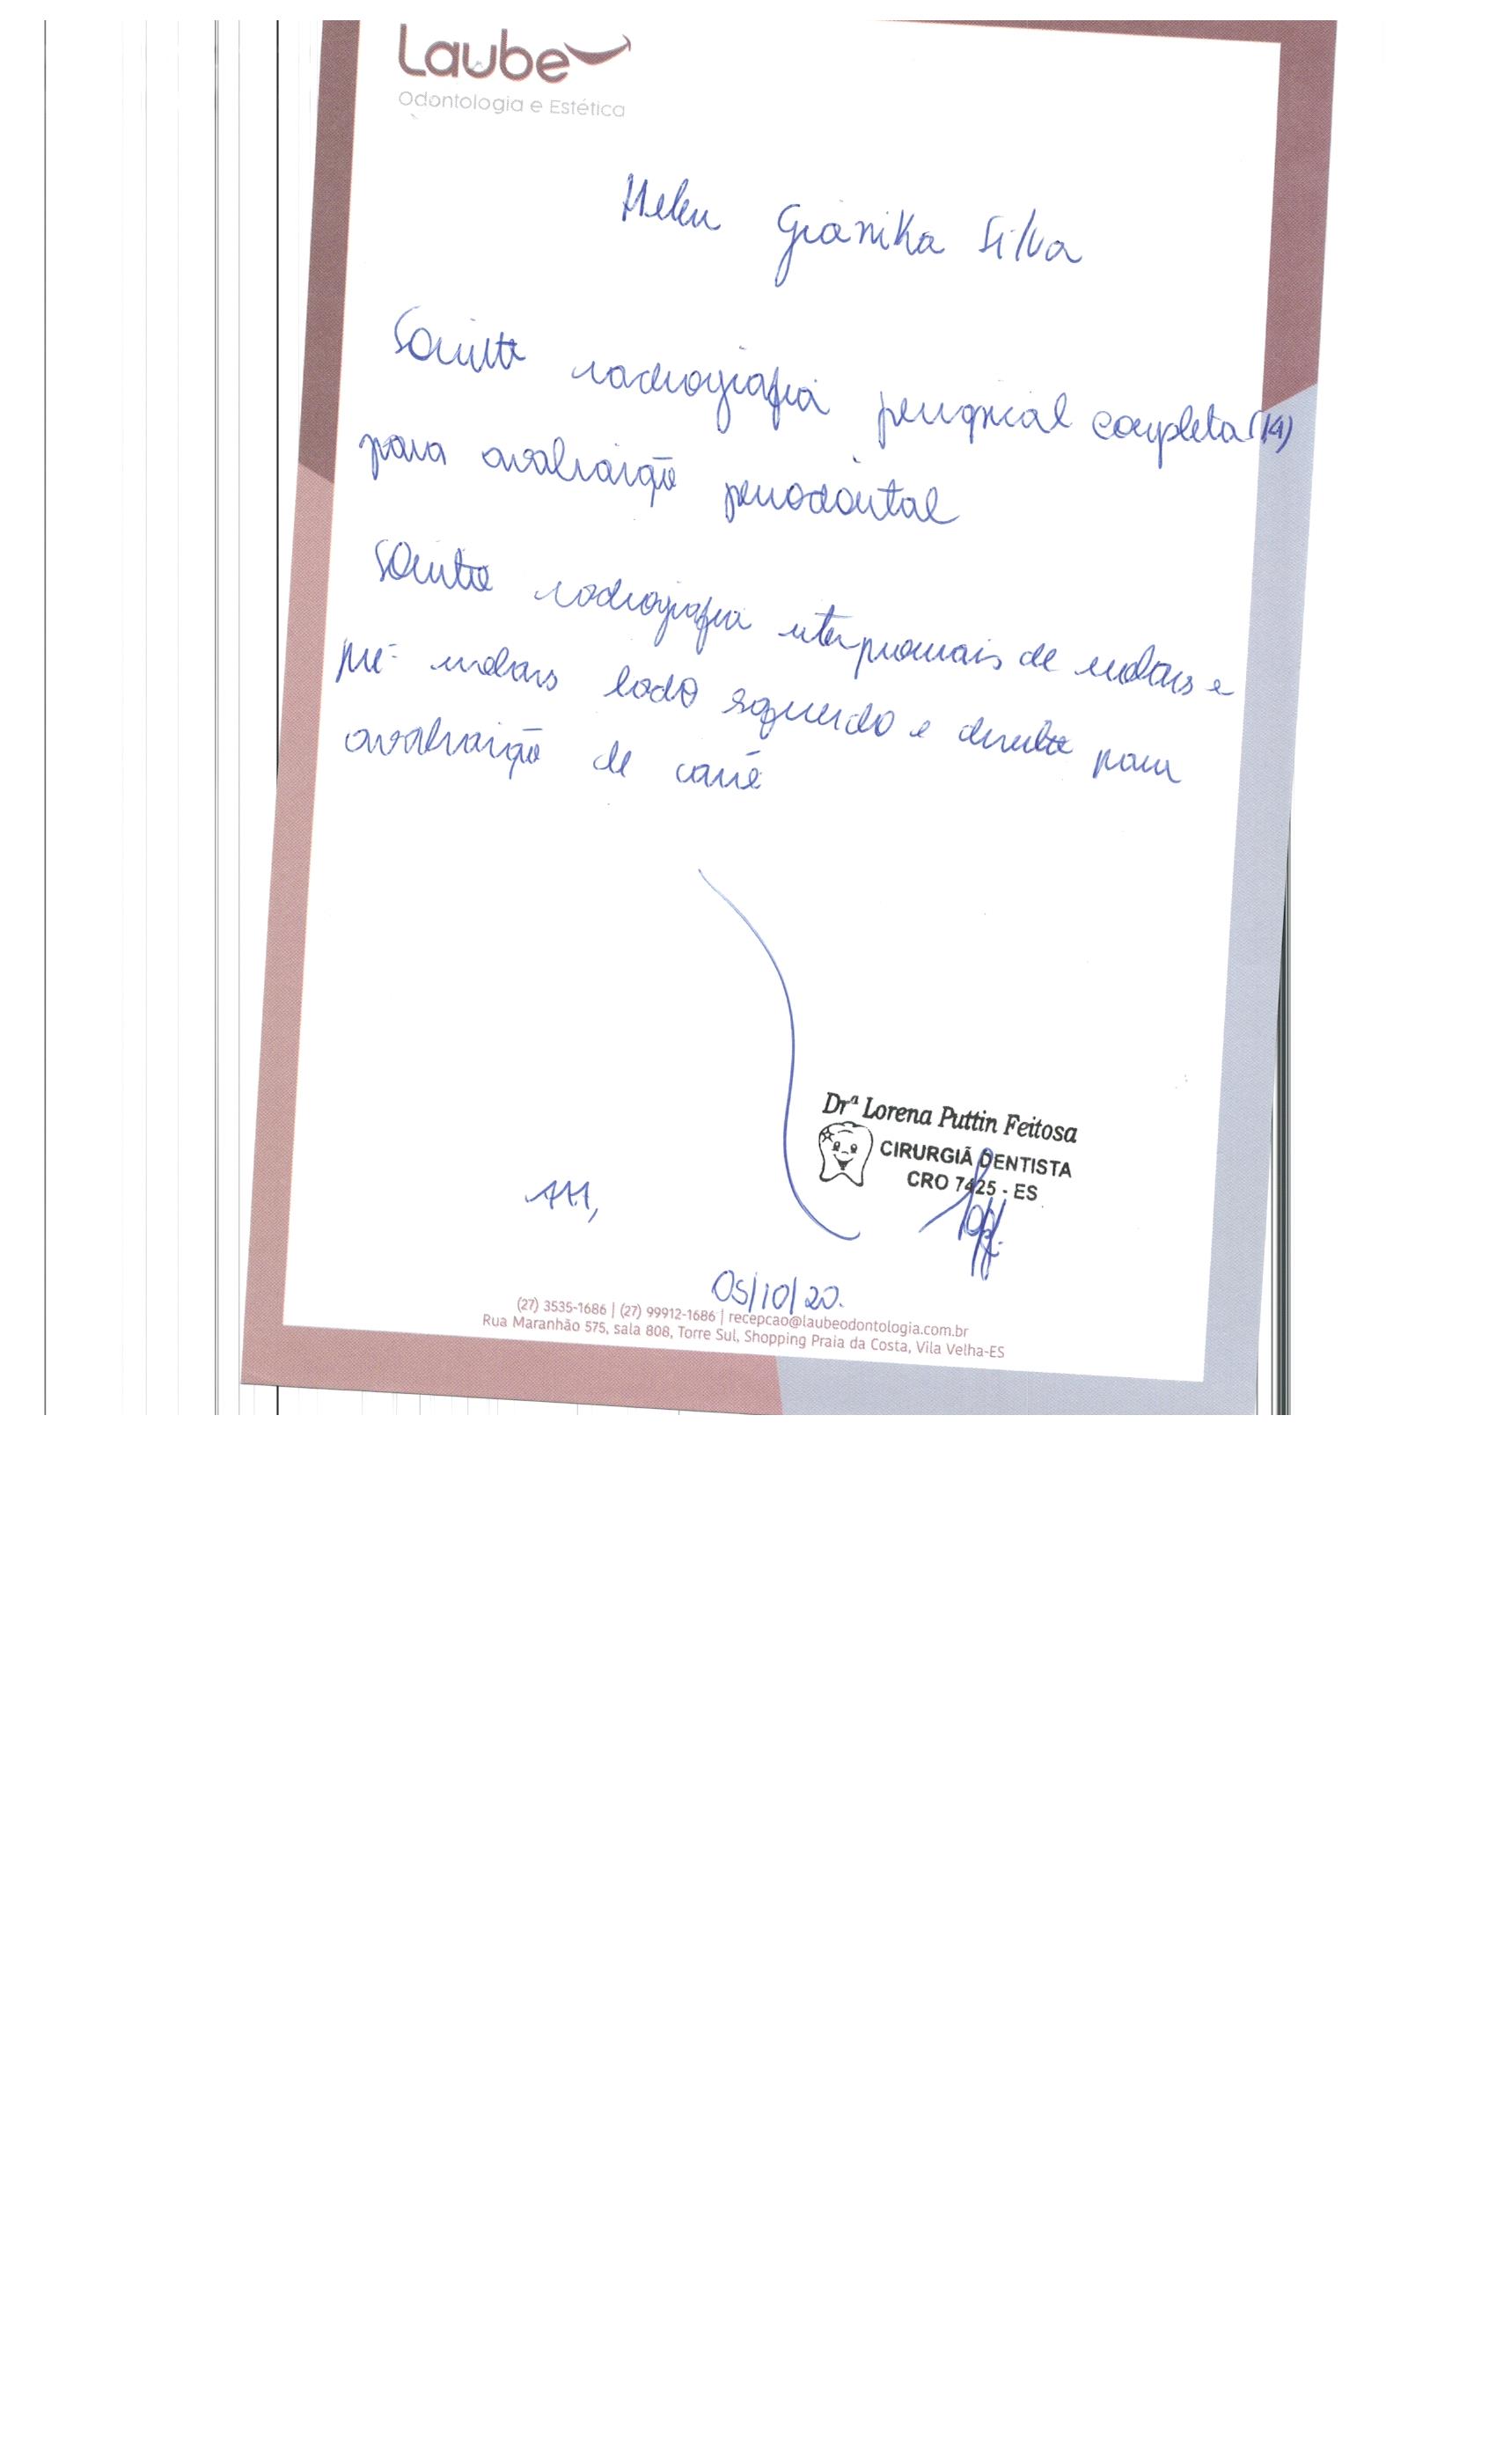 Laube
Odontologia e Estética
Helen Gianika Silva
Solicito radiografia periapical completa (14)
para avaliação periodontal
Solicito radiografia interproximais de molares e
pré-molares lado esquerdo e direito para
avaliação de cárie
Drª Lorena Puttin Feitosa
CIRURGIÃ DENTISTA
CRO 7425 - ES
Att,
05/10/20.
(27) 3535-1686 | (27) 99912-1686 | recepcao@laubeodontologia.com.br
Rua Maranhão 575, sala 808, Torre Sul, Shopping Praia da Costa, Vila Velha-ES